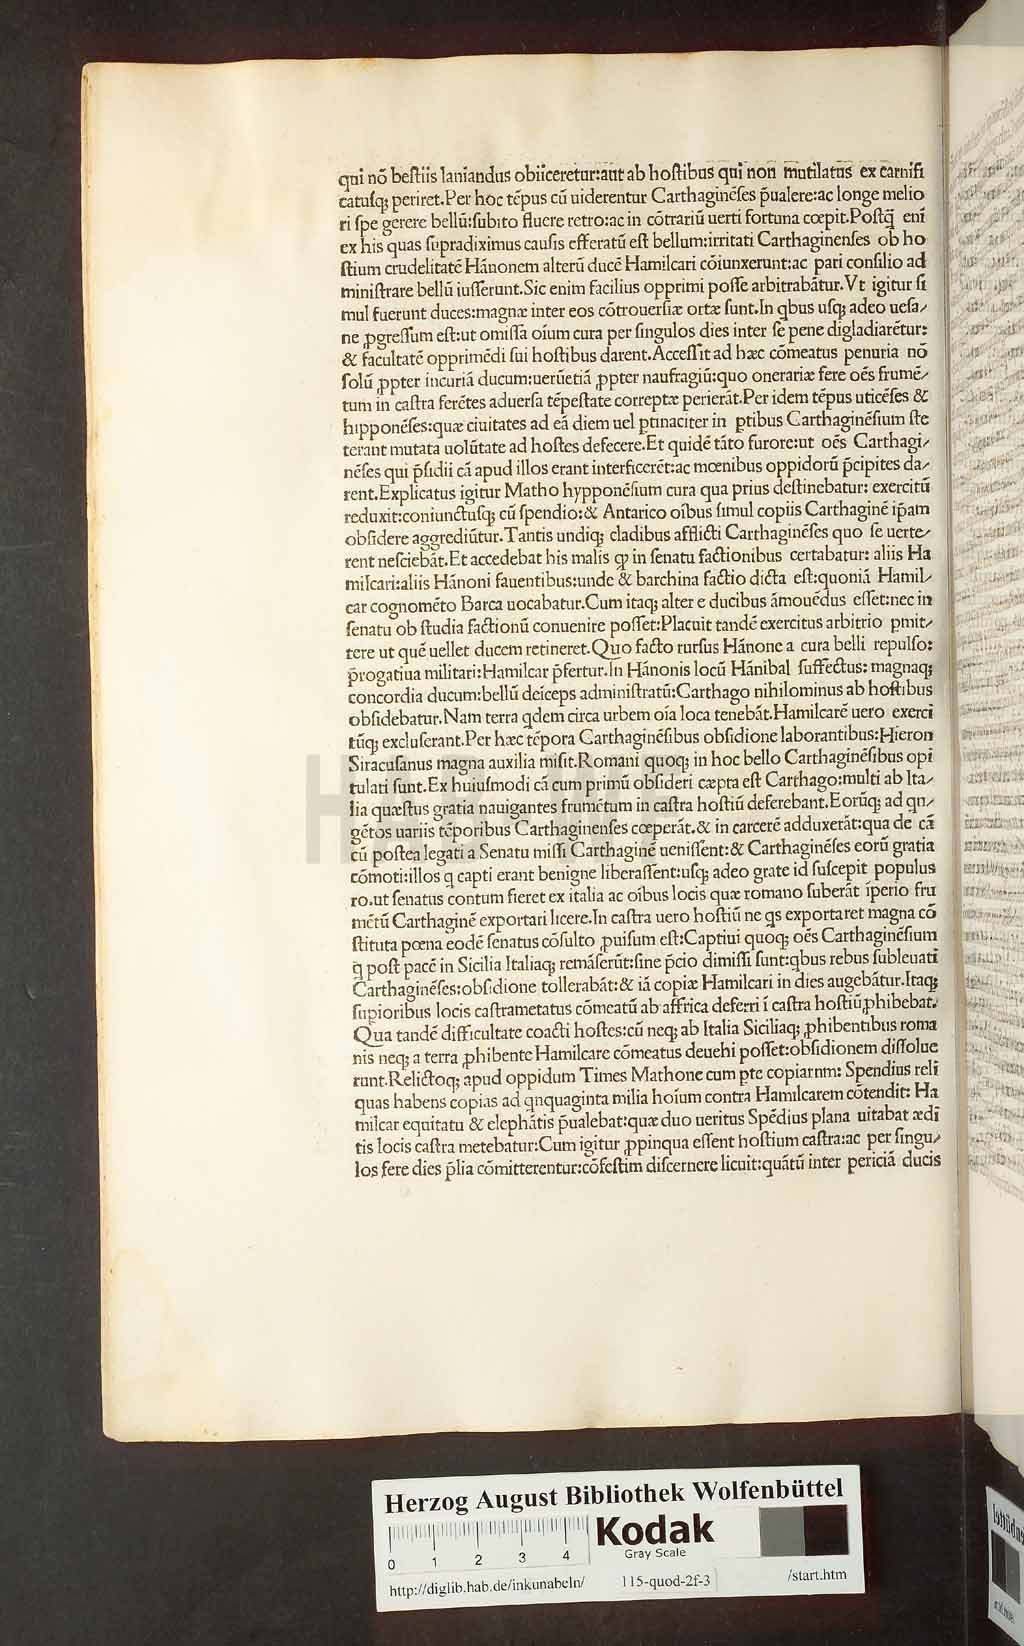 qui nõ beſtiis laniandus obiiceretur:aut ab hoſtibus qui non mutilatus ex carnifi
catuſq; periret.Per hoc tẽpus cũ uiderentur Carthaginẽſes p̄ualere:ac longe melio
ri ſpe gerere bellũ:ſubito fluere retro:ac in cõtrariũ uerti fortuna cœpit.Poſtq̃ enĩ
ex his quas ſupradiximus cauſis efferatũ eſt bellum:irritati Carthaginenſes ob ho
ſtium crudelitatẽ Hãnonem alterũ ducẽ Hamilcari cõiunxerunt:ac pari conſilio ad
miniſtrare bellũ iuſſerunt.Sic enim facilius opprimi poſſe arbitrabãtur.Vt igitur ſi
mul fuerunt duces:magnæ inter eos cõtrouerſiæ ortæ ſunt.In q̇bus uſq; adeo ueſa⸗
ne ꝓgreſſum eſt:ut omiſſa oĩum cura per ſingulos dies inter ſe pene digladiarẽtur:
& facultatẽ opprimẽdi ſui hoſtibus darent.Acceſſit ad hæc cõmeatus penuria nõ
ſolũ ꝓpter incuriã ducum:uerũetiã ꝓpter naufragiũ:quo onerariæ fere oẽs frumẽ⸗
tum in caſtra ferẽtes aduerſa tẽpeſtate correptæ perierãt.Per idem tẽpus uticẽſes &
hipponẽſes:quæ ciuitates ad eã diem uel ꝑtinaciter in ꝑtibus Carthaginẽſium ſte
terant mutata uolũtate ad hoſtes defecere.Et quidẽ tãto furore:ut oẽs Carthagi⸗
nẽſes qui p̄ſidii cã apud illos erant interficerẽt:ac mœnibus oppidorũ p̄cipites da⸗
rent.Explicatus igitur Matho hypponẽſium cura qua prius deſtinebatur: exercitũ
reduxit:coniunctuſq; cũ ſpendio:& Antarico oĩbus ſimul copiis Carthaginẽ ip̃am
obſidere aggrediũtur.Tantis undiq; cladibus afflicti Carthaginẽſes quo ſe uerte⸗
rent neſciebãt.Et accedebat his malis ꝙ in ſenatu factionibus certabatur: aliis Ha
milcari:aliis Hãnoni fauentibus:unde & barchina factio dicta eſt:quoniã Hamil⸗
car cognomẽto Barca uocabatur.Cum itaq; alter e ducibus ãmouẽdus eſſet:nec in
ſenatu ob ſtudia factionũ conuenire poſſet:Placuit tandẽ exercitus arbitrio ꝑmit⸗
tere ut quẽ uellet ducem retineret.Quo facto rurſus Hãnone a cura belli repulſo:
p̄rogatiua militari:Hamilcar p̄fertur.In Hãnonis locũ Hãnibal ſuffectus: magnaq;
concordia ducum:bellũ deiceps adminiſtratũ:Carthago nihilominus ab hoſtibus
obſidebatur.Nam terra q̇dem circa urbem oĩa loca tenebãt.Hamilcarẽ uero exerci
tũq; excluſerant.Per hæc tẽpora Carthaginẽſibus obſidione laborantibus:Hieron
Siracuſanus magna auxilia miſit.Romani quoq; in hoc bello Carthaginẽſibus opi
tulati ſunt.Ex huiuſmodi cã cum primũ obſideri cæpta eſt Carthago:multi ab Ita⸗
lia quæſtus gratia nauigantes frumẽtum in caſtra hoſtiũ deferebant.Eorũq; ad q̇n⸗
gẽtos uariis tẽporibus Carthaginenſes cœperãt.& in carcerẽ adduxerãt:qua de cã
cũ poſtea legati a Senatu miſſi Carthaginẽ ueniſſent:& Carthaginẽſes eorũ gratia
cõmoti:illos q capti erant benigne liberaſſent:uſq; adeo grate id ſuſcepit populus
ro.ut ſenatus contum fieret ex italia ac oĩbus locis quæ romano ſuberãt ĩperio fru
mẽtũ Carthaginẽ exportari licere.In caſtra uero hoſtiũ ne q̇s exportaret magna cõ
ſtituta pœna eodẽ ſenatus cõſulto ꝓuiſum eſt:Captiui quoq; oẽs Carthaginẽſium
q̇ poſt pacẽ in Sicilia Italiaq; remãſerũt:ſine p̄cio dimiſſi ſunt:q̇bus rebus ſubleuati
Carthaginẽſes:obſidione tollerabãt:& iã copiæ Hamilcari in dies augebãtur.Itaq;
ſuꝑioribus locis caſtrametatus cõmeatũ ab affrica deferri ĩ caſtra hoſtiũ ꝓhibebat.
Qua tandẽ difficultate coacti hoſtes:cũ neq; ab Italia Siciliaq; ꝓhibentibus roma
nis neq; a terra ꝓhibente Hamilcare cõmeatus deuehi poſſet:obſidionem diſſolue
runt.Relictoq; apud oppidum Times Mathone cum ꝑte copiarum: Spendius reli
quas habens copias ad q̇nquaginta milia hoĩum contra Hamilcarem cõtendit: Ha
milcar equitatu & elephãtis p̄ualebat:quæ duo ueritus Spẽdius plana uitabat ædi
tis locis caſtra metebatur:Cum igitur ꝓpinqua eſſent hoſtium caſtra:ac per ſingu⸗
los fere dies p̄lia cõmitterentur:cõfeſtim diſcernere licuit:quãtũ inter periciã ducis
HAB WF
Herzog August Bibliothek Wolfenbüttel
0 1 2 3 4
Kodak
Gray Scale
http://diglib.hab.de/inkunabeln/ 115-quod-2f-3 /start.htm